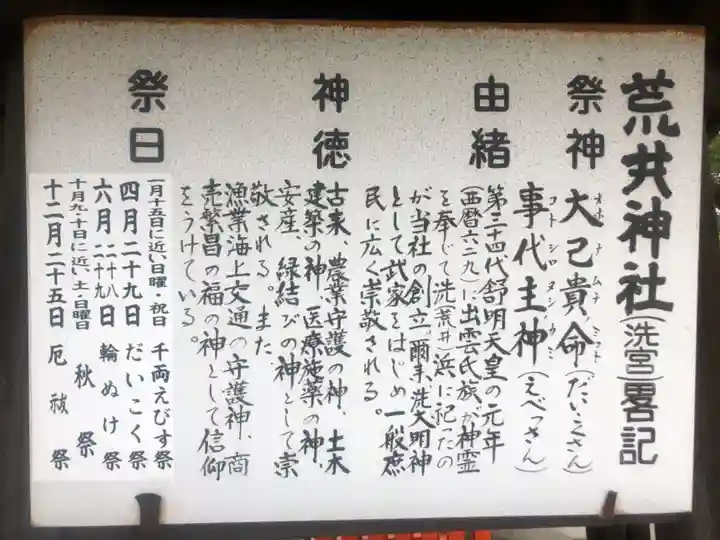 荒井神社(洗宮)畧記
祭神
大己貴命(だいこくさん)
オホナムチノミコト
事代主神(えべっさん)
コトシロヌシノカミ
由緒
第三十四代舒明天皇の元年
(西暦六二九)に出雲氏族が神霊
を奉じて洗荒井浜に祀ったの
が当社の創立、爾来、洗大明神
として武家をはじめ一般庶
民に広く崇敬される。
神徳
古来、農業守護の神、土木
建築の神、医療施薬の神、
安産、縁結びの神として崇
敬される。また
漁業海上交通の守護神、商
売繁昌の福の神として信仰
をうけている。
祭日
一月十五日に近い日曜・祝日 千両えびす祭
四月二十九日 だいこく祭
六月二十八・二十九日 輪ぬけ祭
十月九・十日に近い、土・日曜日 秋祭
十二月二十五日 厄祓祭